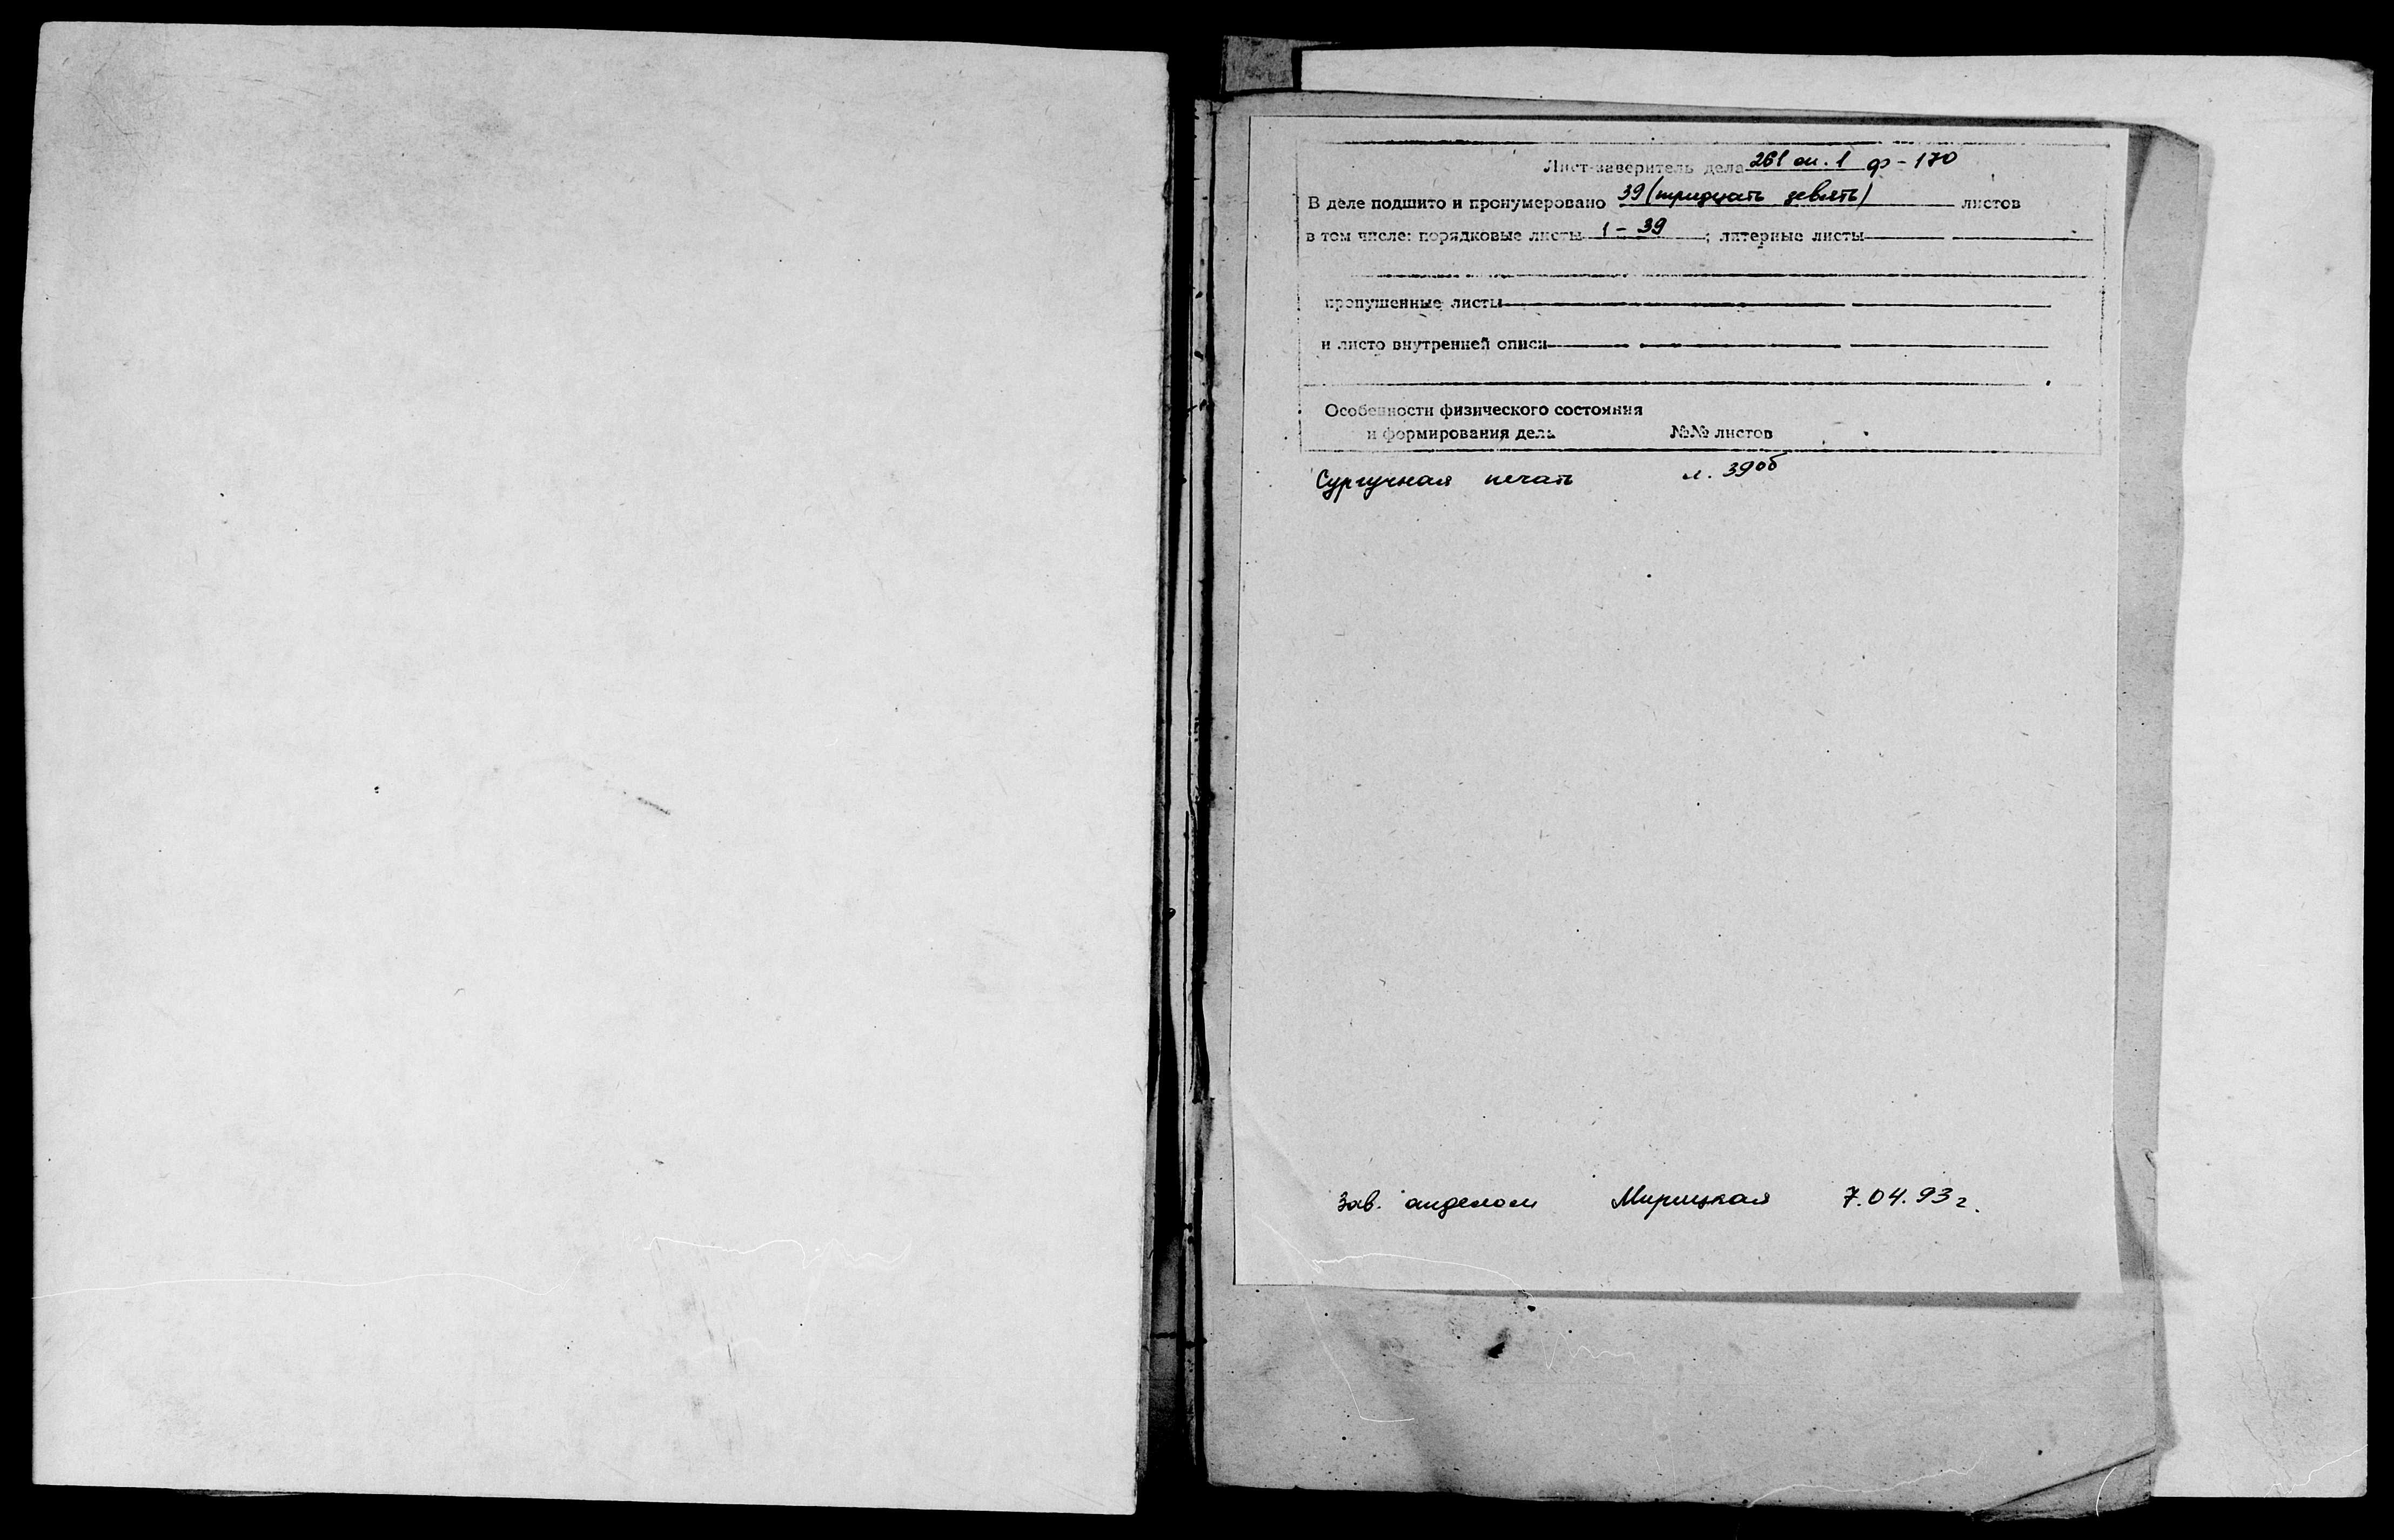 Лист-заверитель дела 261 оп. 1 ф-170
В деле подшито и пронумеровано 39 (тридцать девять) листов
в том числе: порядковые листы 1-39; литерные листы
пропушенные листы
и листо внутренней описи
Особенности физического состояния
и формирования дела №№ листов
Сургучная печать л. 39об
Зав. отделом Мирицкая 7.04.93 г.